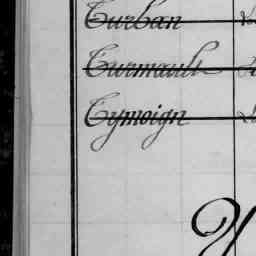 Turban
Turmault
Tymoign